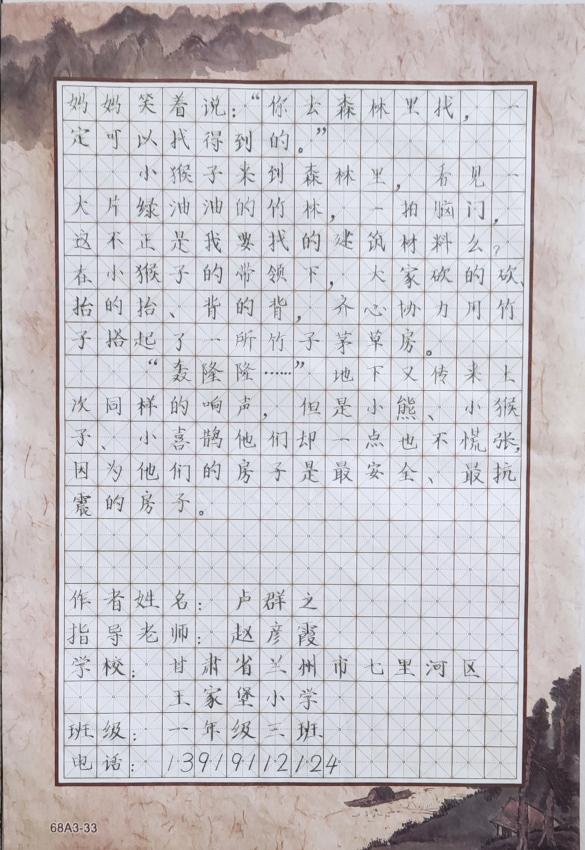 妈妈笑着说：“你去森林里找，一
定可以找得到的。”
小猴子来到森林里，看见一
大片绿油油的竹林，一拍脑门，
这不正是我要找的建筑材料么？
在小猴子的带领下，大家砍的砍、
抬的抬、背的背，齐心协力用竹
子搭起了一所竹子茅草房。
“轰隆隆……”地下又传来上
次同样的响声，但是小熊、小猴
子、小喜鹊他们却一点也不慌张，
因为他们的房子是最安全、最抗
震的房子。
作者姓名：卢群之
指导老师：赵彦霞
学校：甘肃省兰州市七里河区
王家堡小学
班级：一年级三班
电话：13919112124
68A3-33